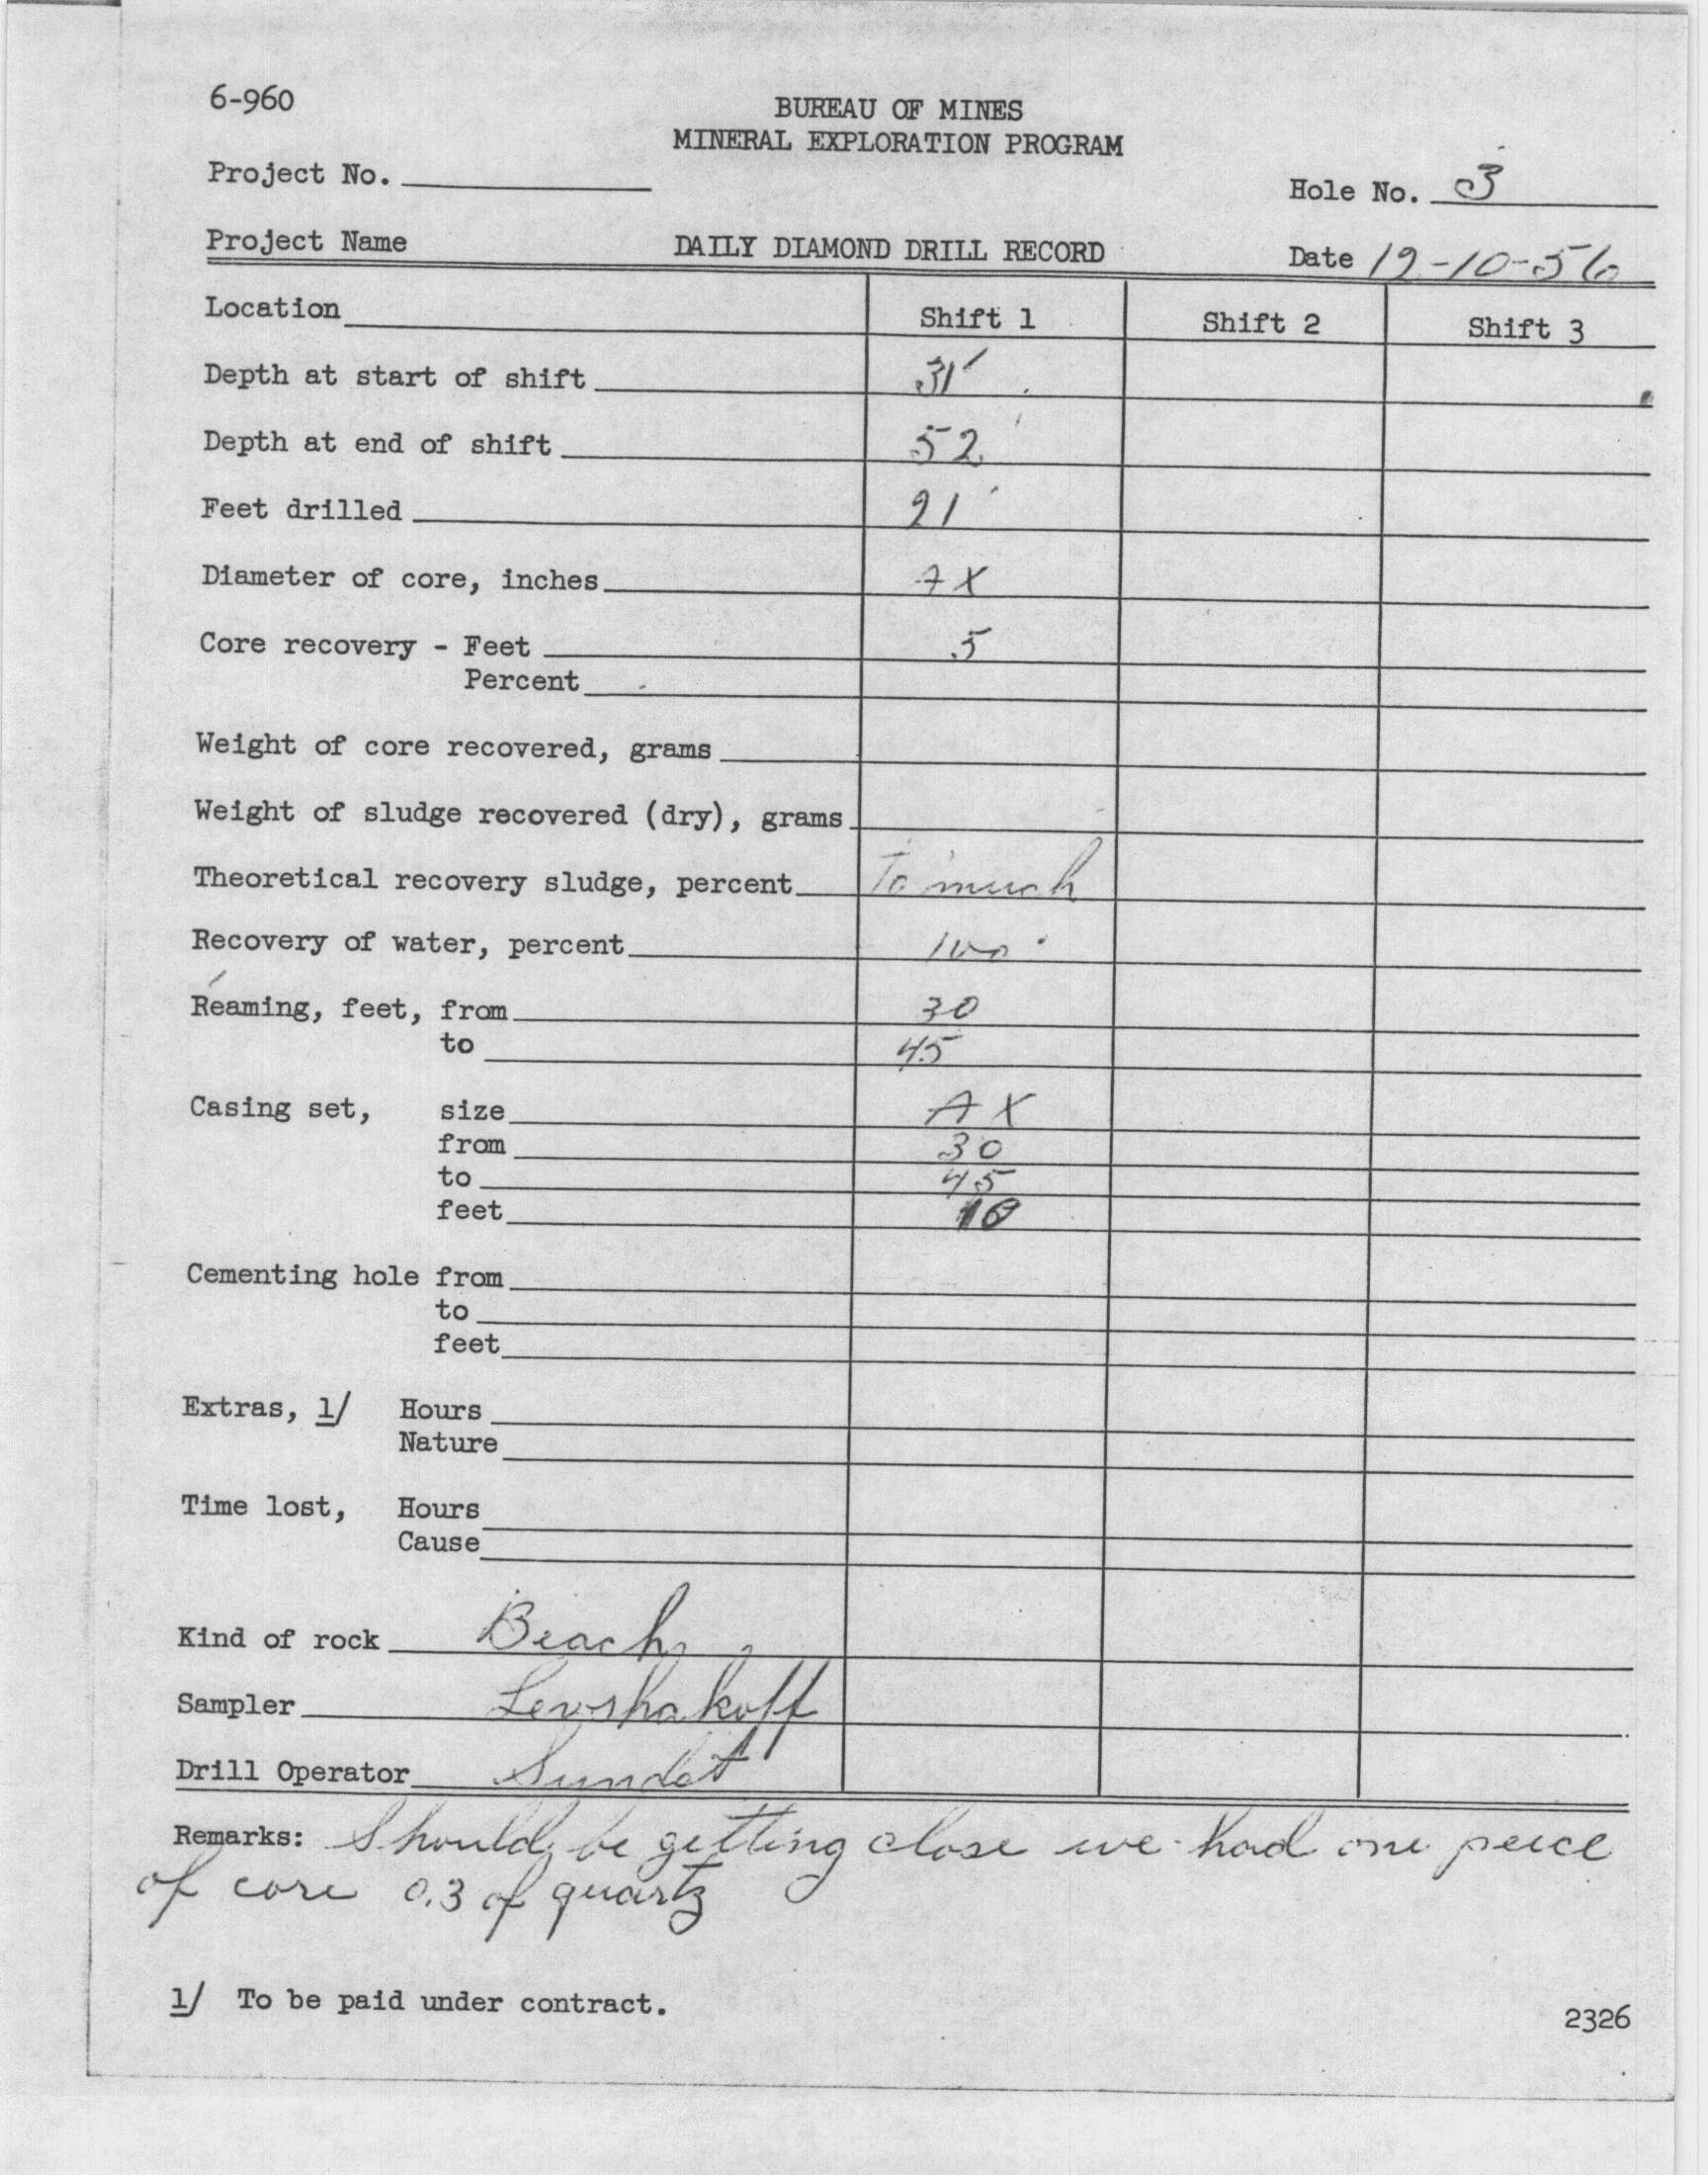 6-960
BUREAU OF MINES
MINERAL EXPLORATION PROGRAM
Project No.
Hole No. 3
Project Name DAILY DIAMOND DRILL RECORD Date 12-10-56
Location Shift 1 Shift 2 Shift 3
Depth at start of shift 31'
Depth at end of shift 52'
Feet drilled 21'
Diameter of core, inches AX
Core recovery - Feet 5
Percent
Weight of core recovered, grams
Weight of sludge recovered (dry), grams
Theoretical recovery sludge, percent To much
Recovery of water, percent 100
Reaming, feet, from 30
to 45
Casing set, size AX
from 30
to 45
feet
Cementing hole from
to
feet
Extras, 1/ Hours
Nature
Time lost, Hours
Cause
Kind of rock Beach
Sampler Levshakoff
Drill Operator Sundet
Remarks: Should be getting close we had one peice
of core 0.3 of quartz
1/ To be paid under contract.
2326